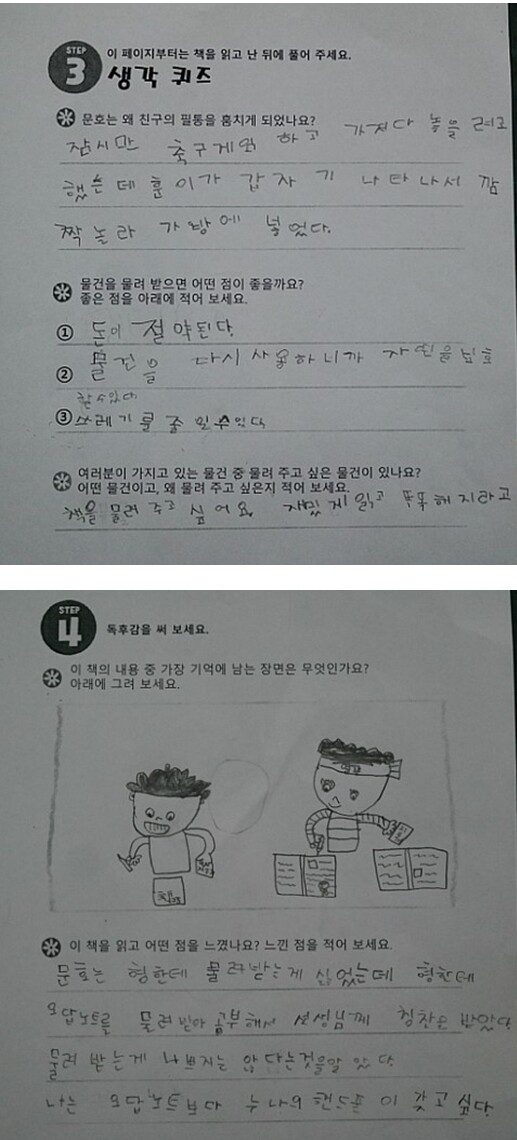 STEP
3
이 페이지부터는 책을 읽고 난 뒤에 풀어 주세요.
생각 퀴즈
문호는 왜 친구의 필통을 훔치게 되었나요?
잠시만 축구게임 하고 가져다 놓을 려고
했는데 훈이가 갑자기 나타나서 깜
짝 놀라 가방에 넣었다.
물건을 물려 받으면 어떤 점이 좋을까요?
좋은 점을 아래에 적어 보세요.
① 돈이 절약된다.
② 물건을 다시 사용하니까 자원을 보호
할 수 있다
③ 쓰레기를 줄일 수 있다
여러분이 가지고 있는 물건 중 물려 주고 싶은 물건이 있나요?
어떤 물건이고, 왜 물려 주고 싶은지 적어 보세요.
책을 물려 주고 싶어요. 재밌게 읽고 똑똑해지라고
STEP
4
독후감을 써 보세요.
이 책의 내용 중 가장 기억에 남는 장면은 무엇인가요?
아래에 그려 보세요.
이 책을 읽고 어떤 점을 느꼈나요? 느낀 점을 적어 보세요.
문호는 형한테 물려받는게 싫었는데 형한테
오답노트를 물려받아 공부해서 선생님께 칭찬은 받았다
물려 받는게 나쁘지는 않다는것을알 았다.
나는 오답노트보다 누나의 핸드폰이 갖고 싶다.